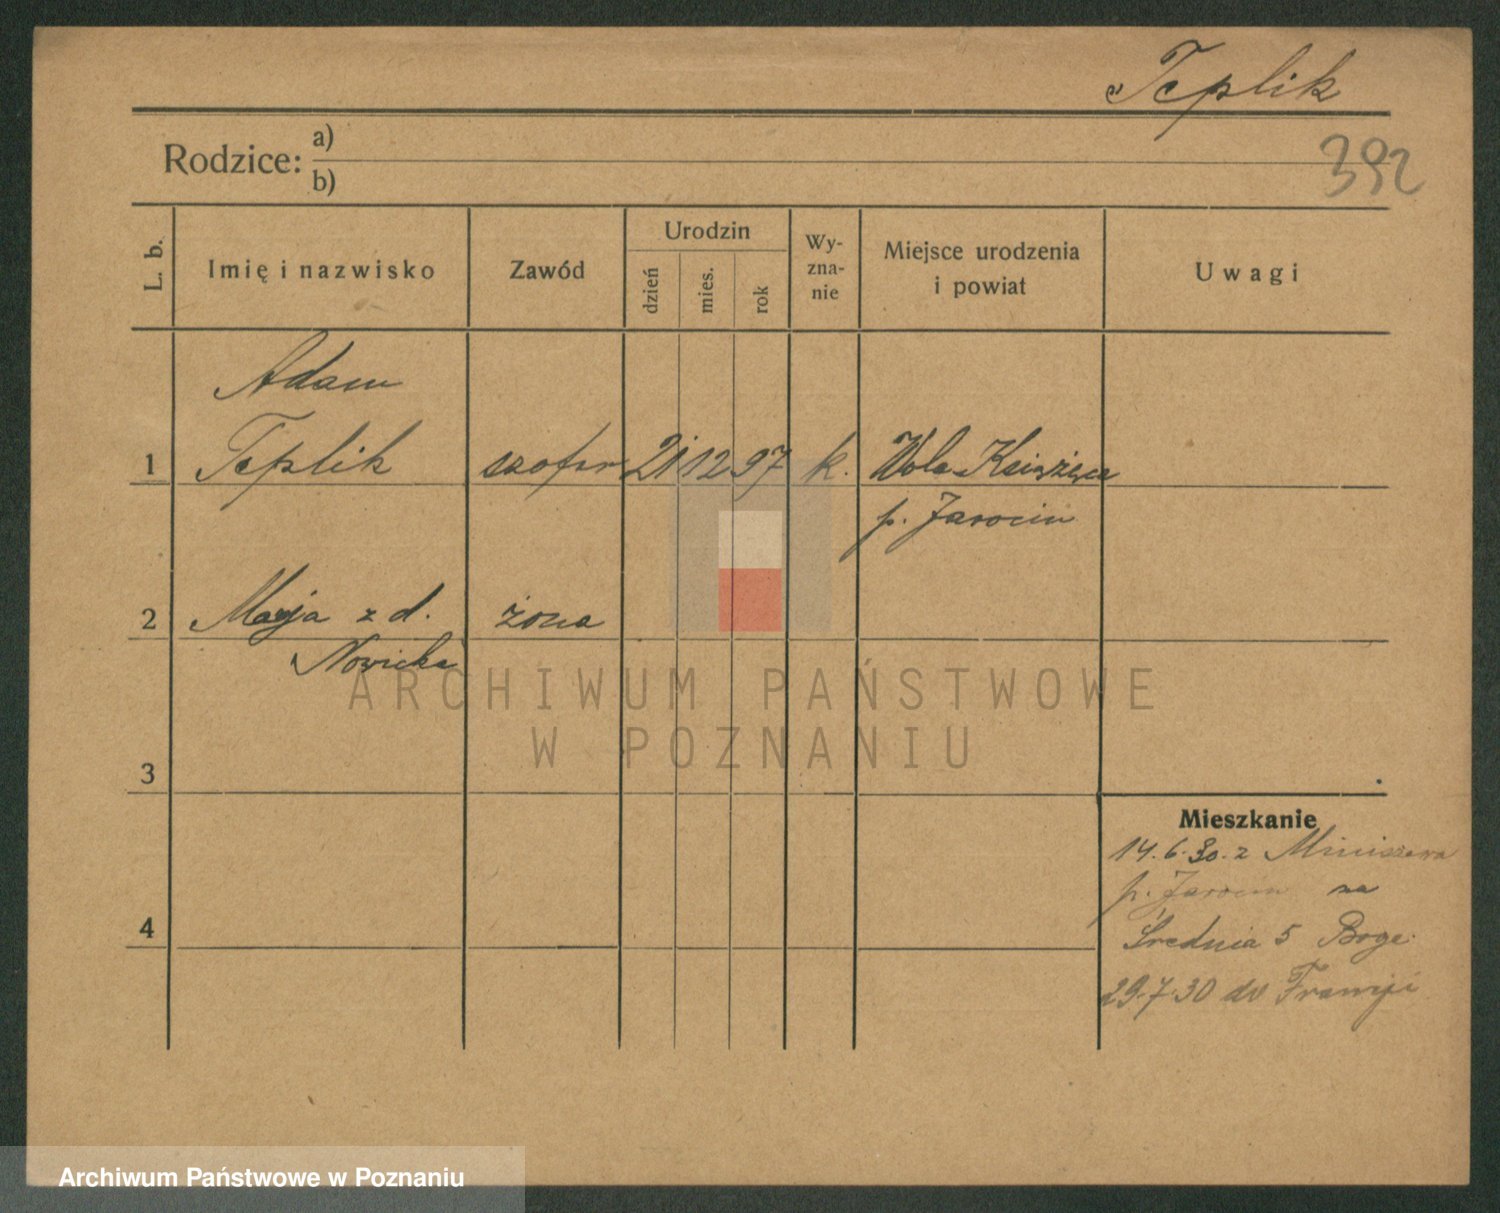 Teplik
392
Rodzice: a)
b)
L. b.
Imię i nazwisko
Zawód
Urodzin
dzień
mies.
rok
Wy-
zna-
nie
Miejsce urodzenia
i powiat
Uwagi
Adam
1 Teplik szofer 21 12 97 k. Wola Książęca
p. Jarocin
2 Marja z d. żona
Nowicka
ARCHIWUM PAŃSTWOWE
W POZNANIU
3
Mieszkanie
14.6.30. z Miniszewa
p. Jarocin na
4
Średnia 5 Boge
29.7.30 do Francji
Archiwum Państwowe w Poznaniu